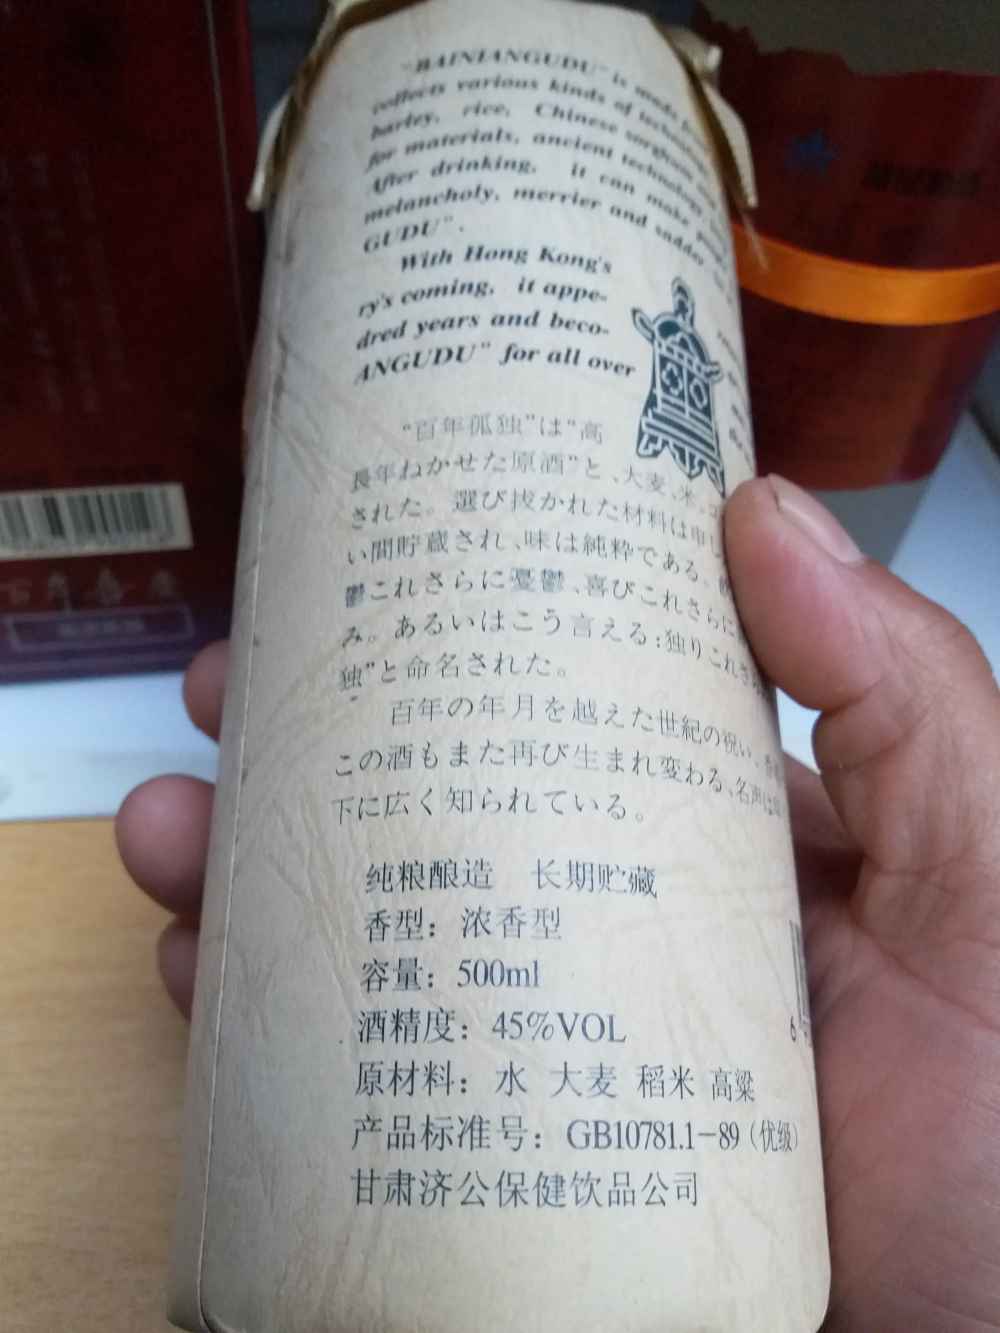 "BAINIANGUDU" is made from
collects various kinds of
barley, rice, Chinese sorghum
for materials, ancient technology
After drinking, it can make
melancholy, merrier and sadder
GUDU".
With Hong Kong's
ry's coming, it appe-
dred years and beco-
ANGUDU" for all over
"百年孤独"は"高
長年ねかせた原酒"と、大麦、米、コ
された。選び抜かれた材料は申し
い間貯蔵され、味は純粋である。
鬱これさらに憂鬱、喜びこれさらに
み。あるいはこう言える:独りこれさ
独"と命名された。
百年の年月を越えた世紀の祝い、香
この酒もまた再び生まれ変わる、名声は
下に広く知られている。
纯粮酿造 长期贮藏
香型：浓香型
容量：500ml
酒精度：45%VOL
原材料：水 大麦 稻米 高粱
产品标准号：GB10781.1-89（优级）
甘肃济公保健饮品公司
6